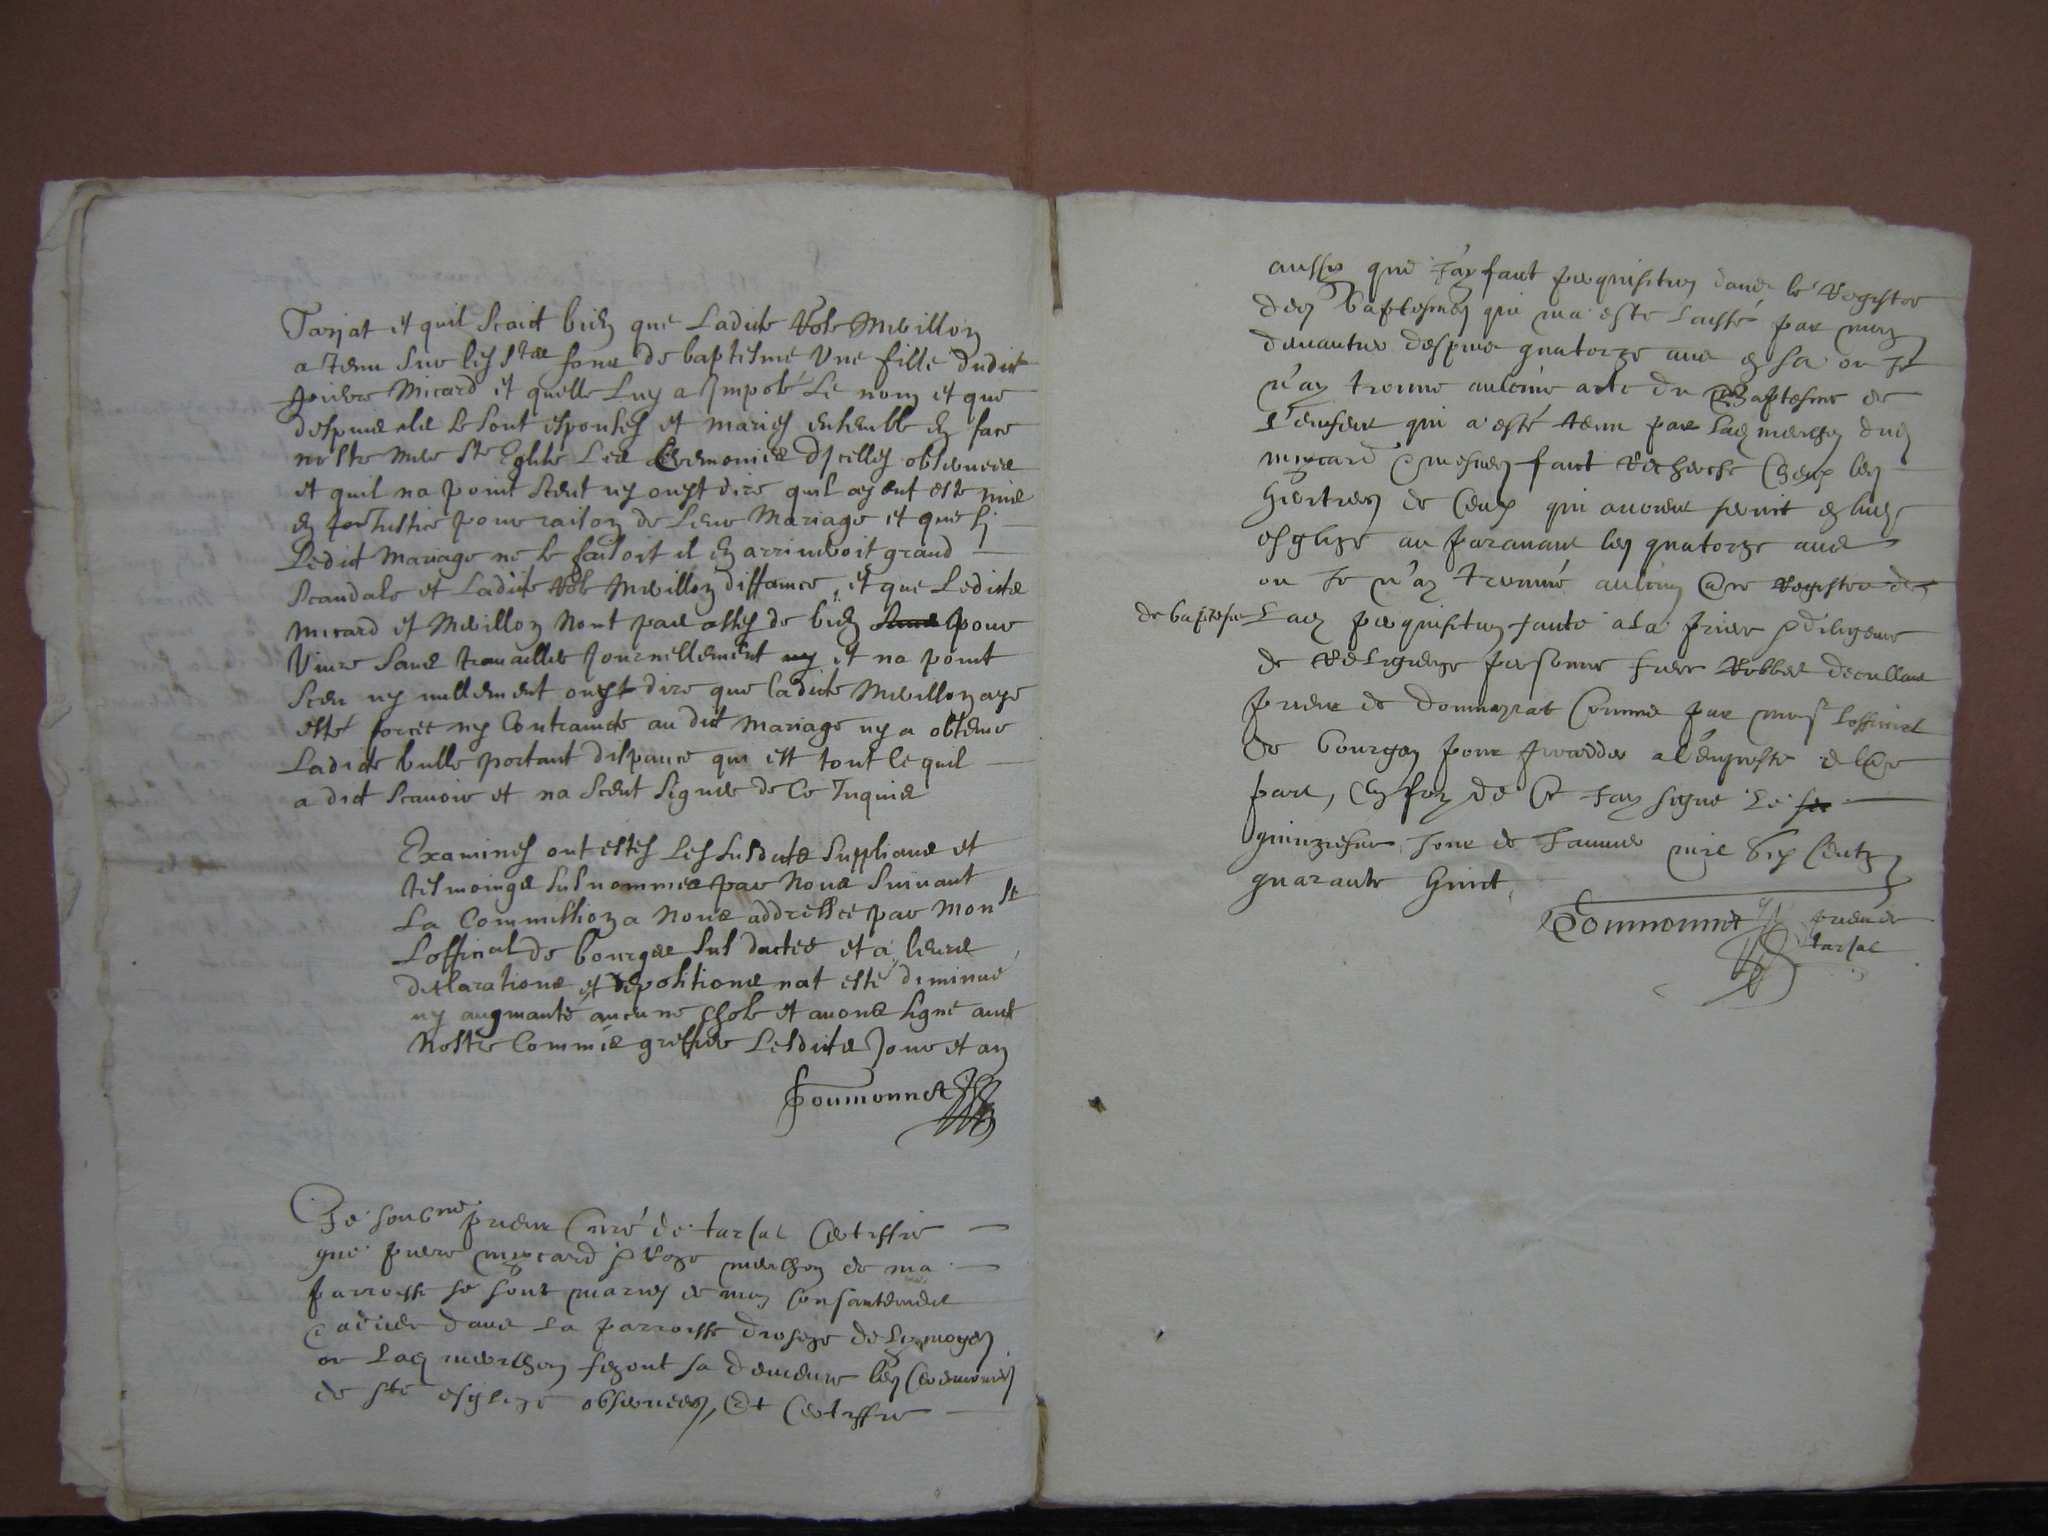 Tarjat et quil scait bien que Ladicte Rose Mreillon
a tenu sur les stes fons de baptesme Une fille dudict
pierre Micard et quelle Luy a Imposé Le nom et que
despuis ils se sont espousés et mariés ensemble en face
nostre mere ste Eglise Les Ceremonies dIcelles observees
et quil na point sceut ny ouyt dire quil ayent esté mis
en Justice pour raison de Leur Mariage et que si
Ledict Mariage ne se faisoit il en arriveroit grand
scandale et Ladicte Rose Mreillon diffamee, et que Lesdicts
Micard et Mreillon Nont pas asses de bien pour
Vivre sans travailler Journellement et na point
sceu ny nullement ouyt dire que ladicte Mreillon aye
esté forcée ny Contraincte au dict Mariage ny a obtenir
Ladicte bulle portant dispance qui est tout le quil
a dict scavoir et na sceut signer de Ce Inquis
Examinés ont estés Les susdicts supplians et
tesmoings susnommes par Nous suivant
La Commission a Nous addressée par Monsr
Lofficial de bourges sus dactée et a leurs
declarations et depositions nat esté diminué
ny augmanté aucune chose et avons signé avec
Nostre Commis greffier Lesdicts Jour et an
Poumonnet
Je soubné prieur Curé de tarjac Certiffie
que pierre myccard & Roze merilhon de ma
parroisse se sont mariés de mon consantement
dans La parroisse dioseze de Lymoges
ou Lad merilhon fezont sa demeure les Ceremonies
de ste esglize observees, Et Certiffie
aussy que J'ay faict perquisition dans le Registre
des Baptesmes qui ma esté laissé par mon
devantier despuis quatorze ans en sa ou Je
n'ay trouve aulcune acte du Baptesme de
L'enfent qui a esté tenu par Lad merilhon dud
myccard & mesmes faict Recherche Cheux les
heritiers de Ceux qui avoient servit en lad
esglize au paravant les quatorze ans
ou Je n'ay trouvé aulcun Registre
de baptesme Lad perquisition faicte a La priere & diligence
de Religieuze personne frere Robbert deculland
prieur de Dommayrat Commis par monsr Lofficial
de bourges pour proceder a l'enqueste
part, En foy de Ce J'ay signé Le
quinziesme Jour de Janvier mil Six Centz
quarante huict
Poumonnet prieur de
tarjac